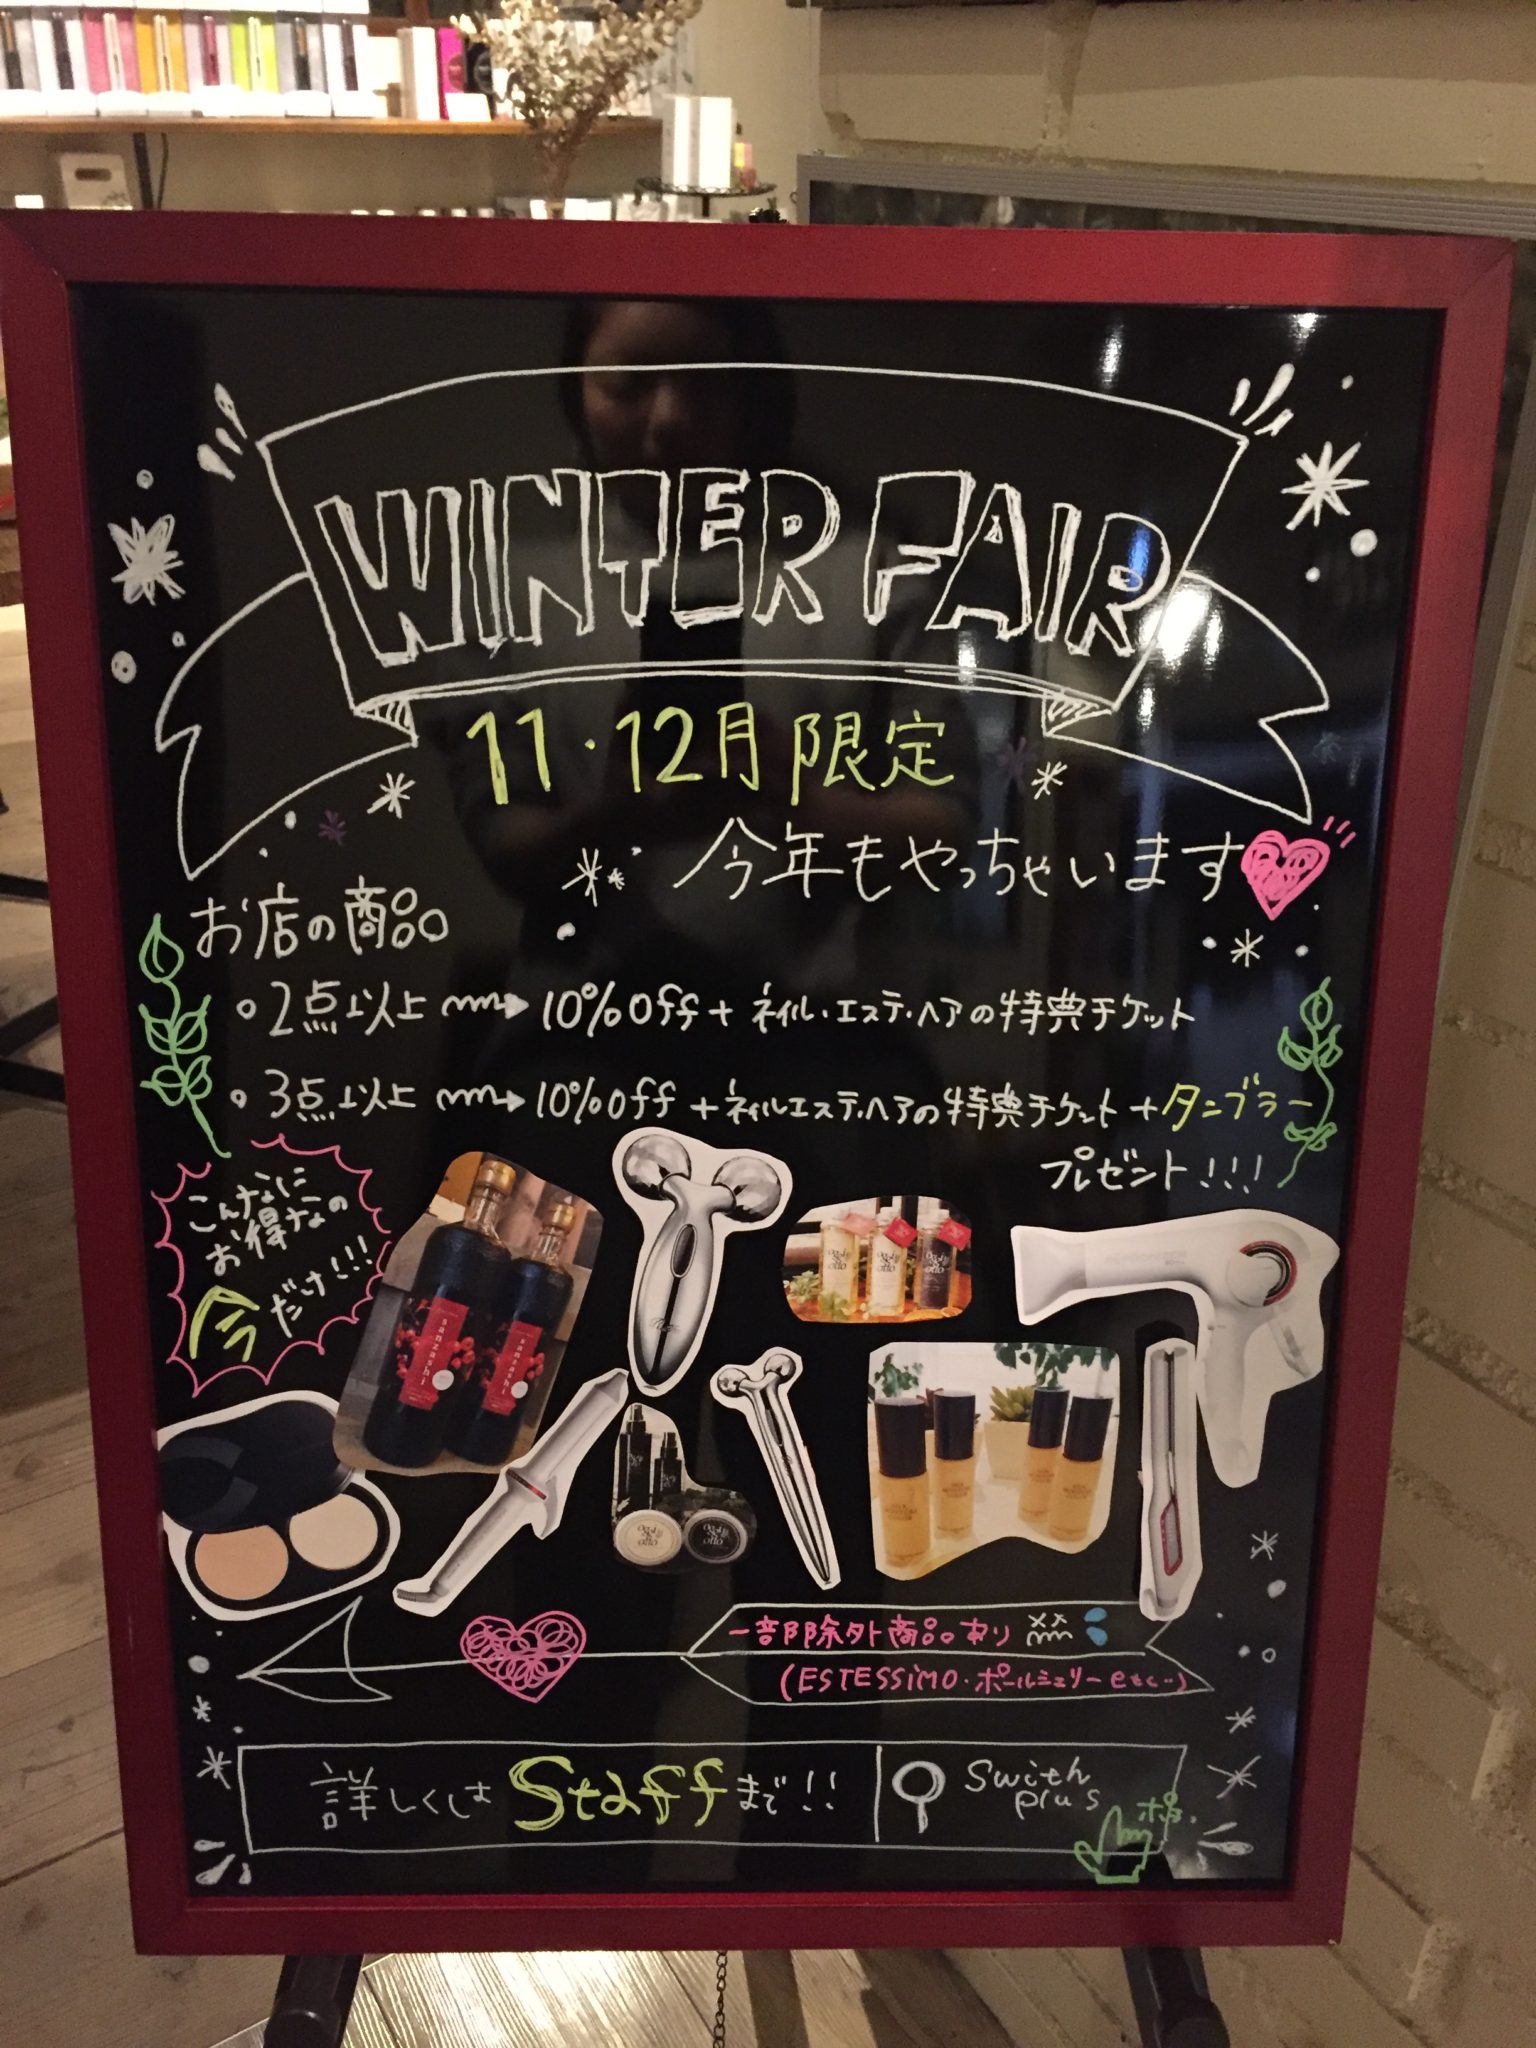 WINTER FAIR
11・12月限定
今年もやっちゃいます
お店の商品
2点以上 10%Off + ネイル・エステ・ヘアの特典チケット
3点以上 10%Off + ネイルエステ・ヘアの特典チケット + タンブラー
プレゼント!!!
こんなに
お得なの
今だけ!!!
sanzashi
sanzashi
一部除外商品あり
(ESTESSiMO・ポールミェリー etc…)
詳しくは Staff まで!!
Swith
plus
ポチ